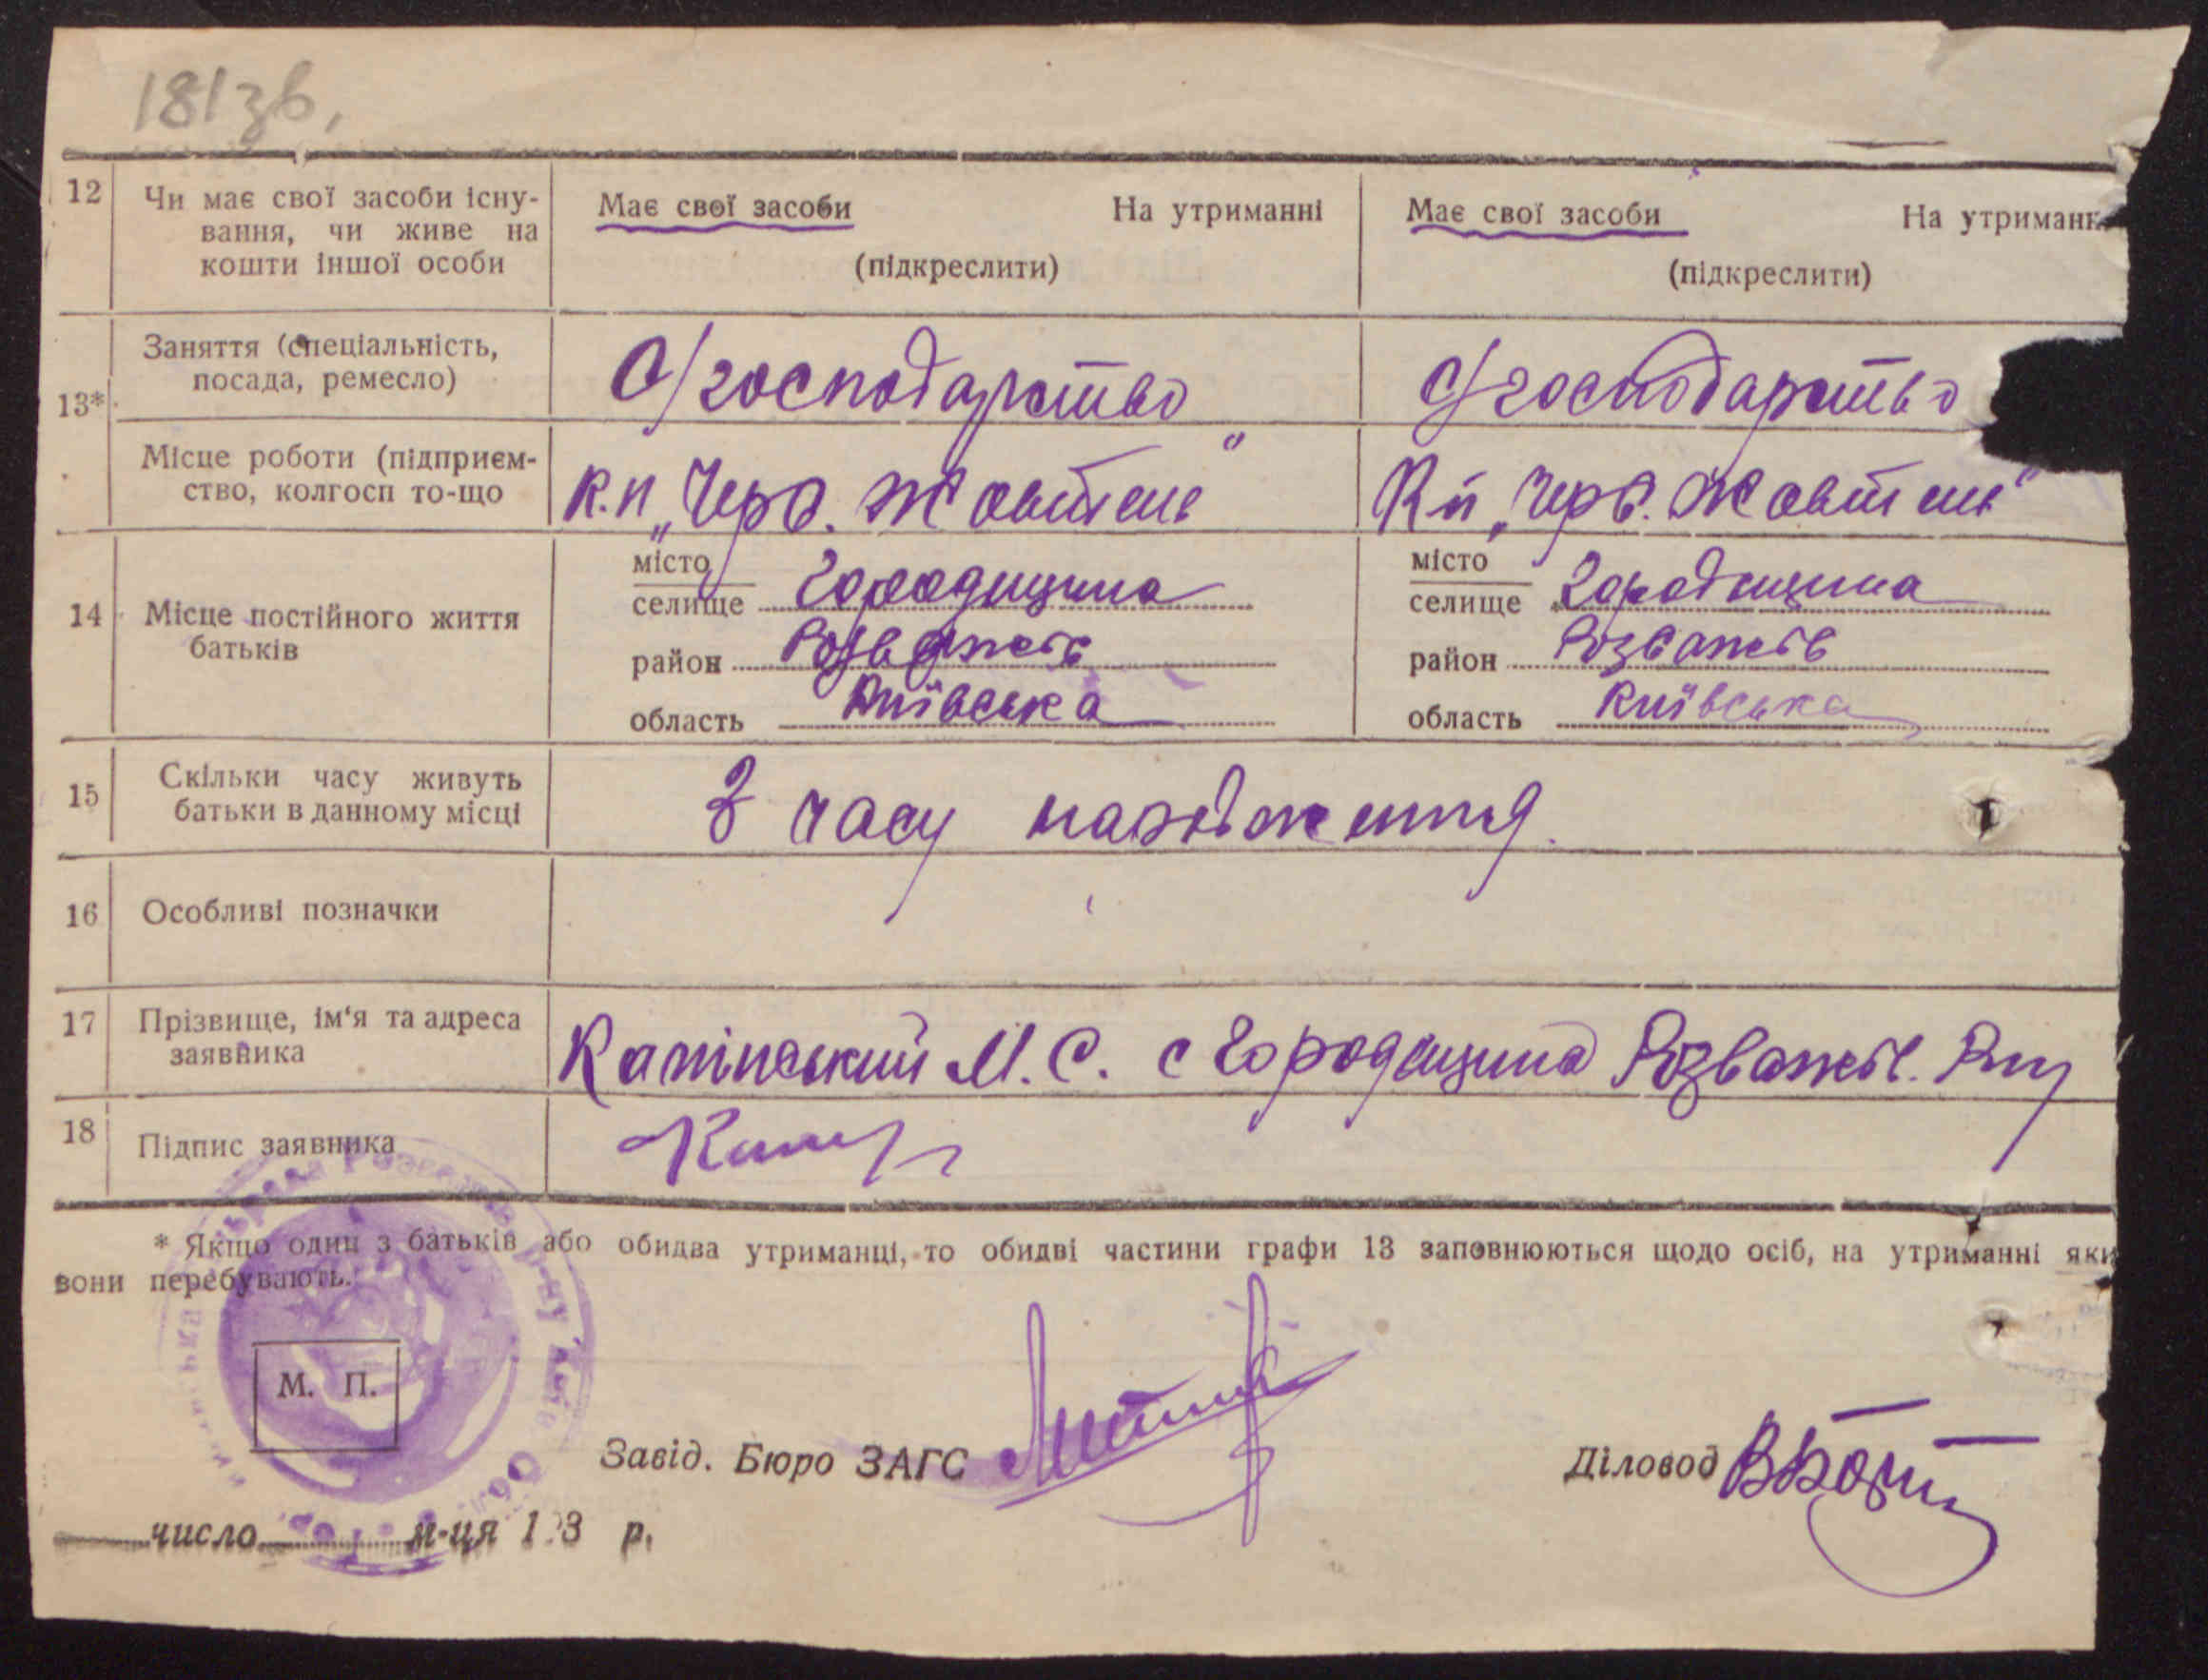 181зв,
12 Чи має свої засоби існу-
вання, чи живе на
кошти іншої особи
Має свої засоби На утриманні
(підкреслити)
Має свої засоби На утриманн
(підкреслити)
13*
Заняття (спеціальність,
посада, ремесло)
С/господарство
С/господарство
Місце роботи (підприєм-
ство, колгосп то-що
К.п „Черв. Жовтень"
Кп „Черв. Жовтень"
14 Місце постійного життя
батьків
місто
селище Городищина
район Розважів
область Київська
місто
селище Городищина
район Розважів
область Київська
15 Скільки часу живуть
батьки в данному місці
З часу народження.
16 Особливі позначки
17 Прізвище, ім'я та адреса
заявника
М. С. с Городищина Розважів.
18 Підпис заявника
* Якщо один з батьків або обидва утриманці, то обидві частини графи 13 заповнюються щодо осіб, на утриманні яки
вони перебувають.
М. П.
Завід. Бюро ЗАГС
Діловод
число м-ця 193 р.